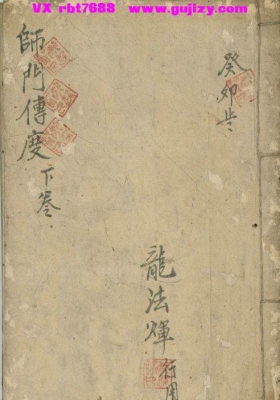 VX rbt7688 www.gujizy.com
癸卯
師門傳度 下卷
龍法煇